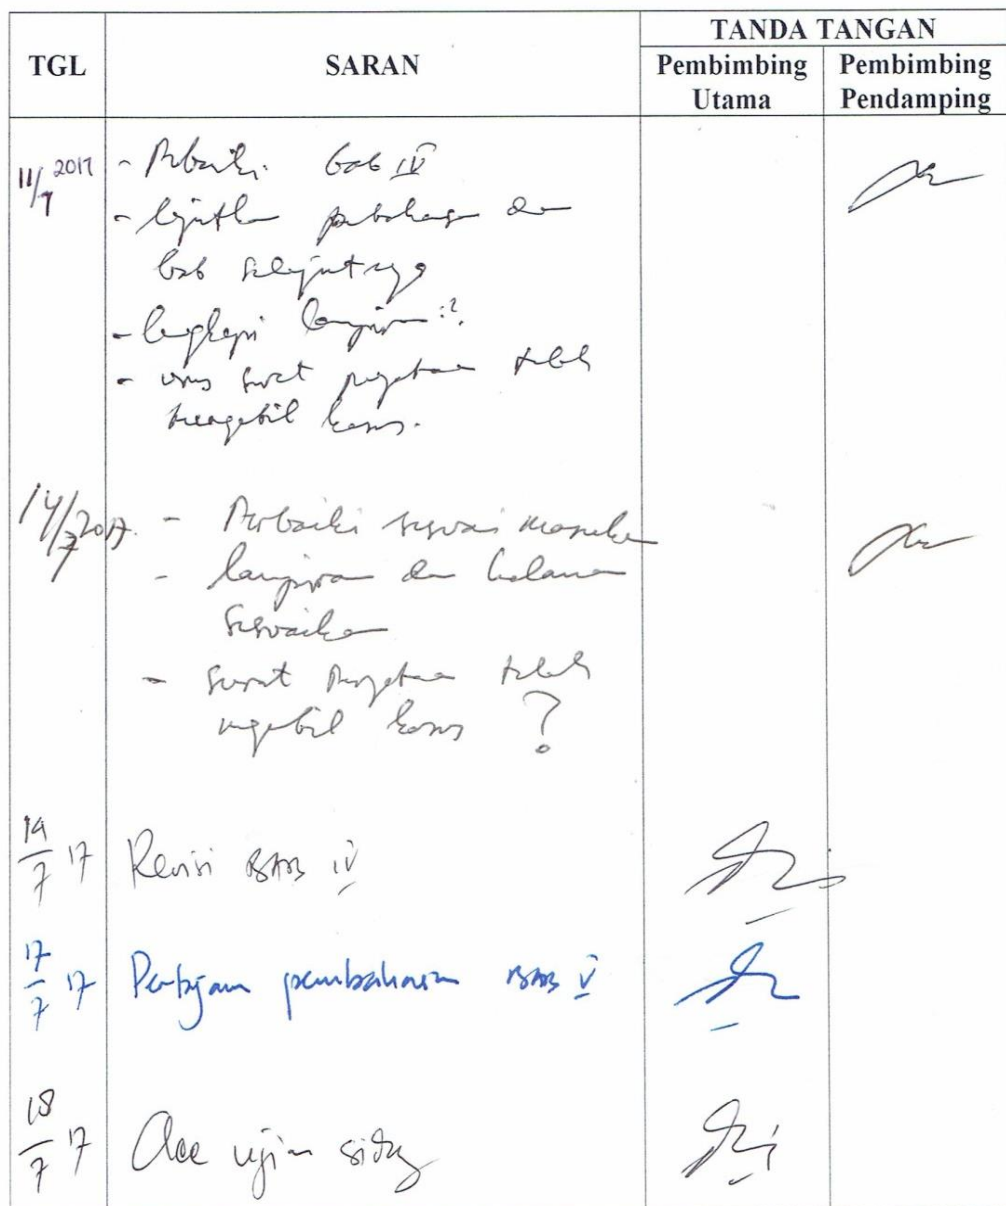 TGL SARAN TANDA TANGAN
Pembimbing Utama Pembimbing Pendamping
11/7 2017 - Perbaiki bab IV
- lanjutkan pembahasan dan
bab selanjutnya
- lengkapi lampiran :2.
- urus surat pernyataan telah
mengambil kasus.
14/7 2017. - Perbaiki sesuai masukan
- lampiran dan halaman
sesuaikan
- surat pernyataan telah
mengambil kasus ?
14/7 17 Revisi BAB IV
17/7 17 Pertajam pembahasan BAB V
18/7 17 Acc ujian sidang